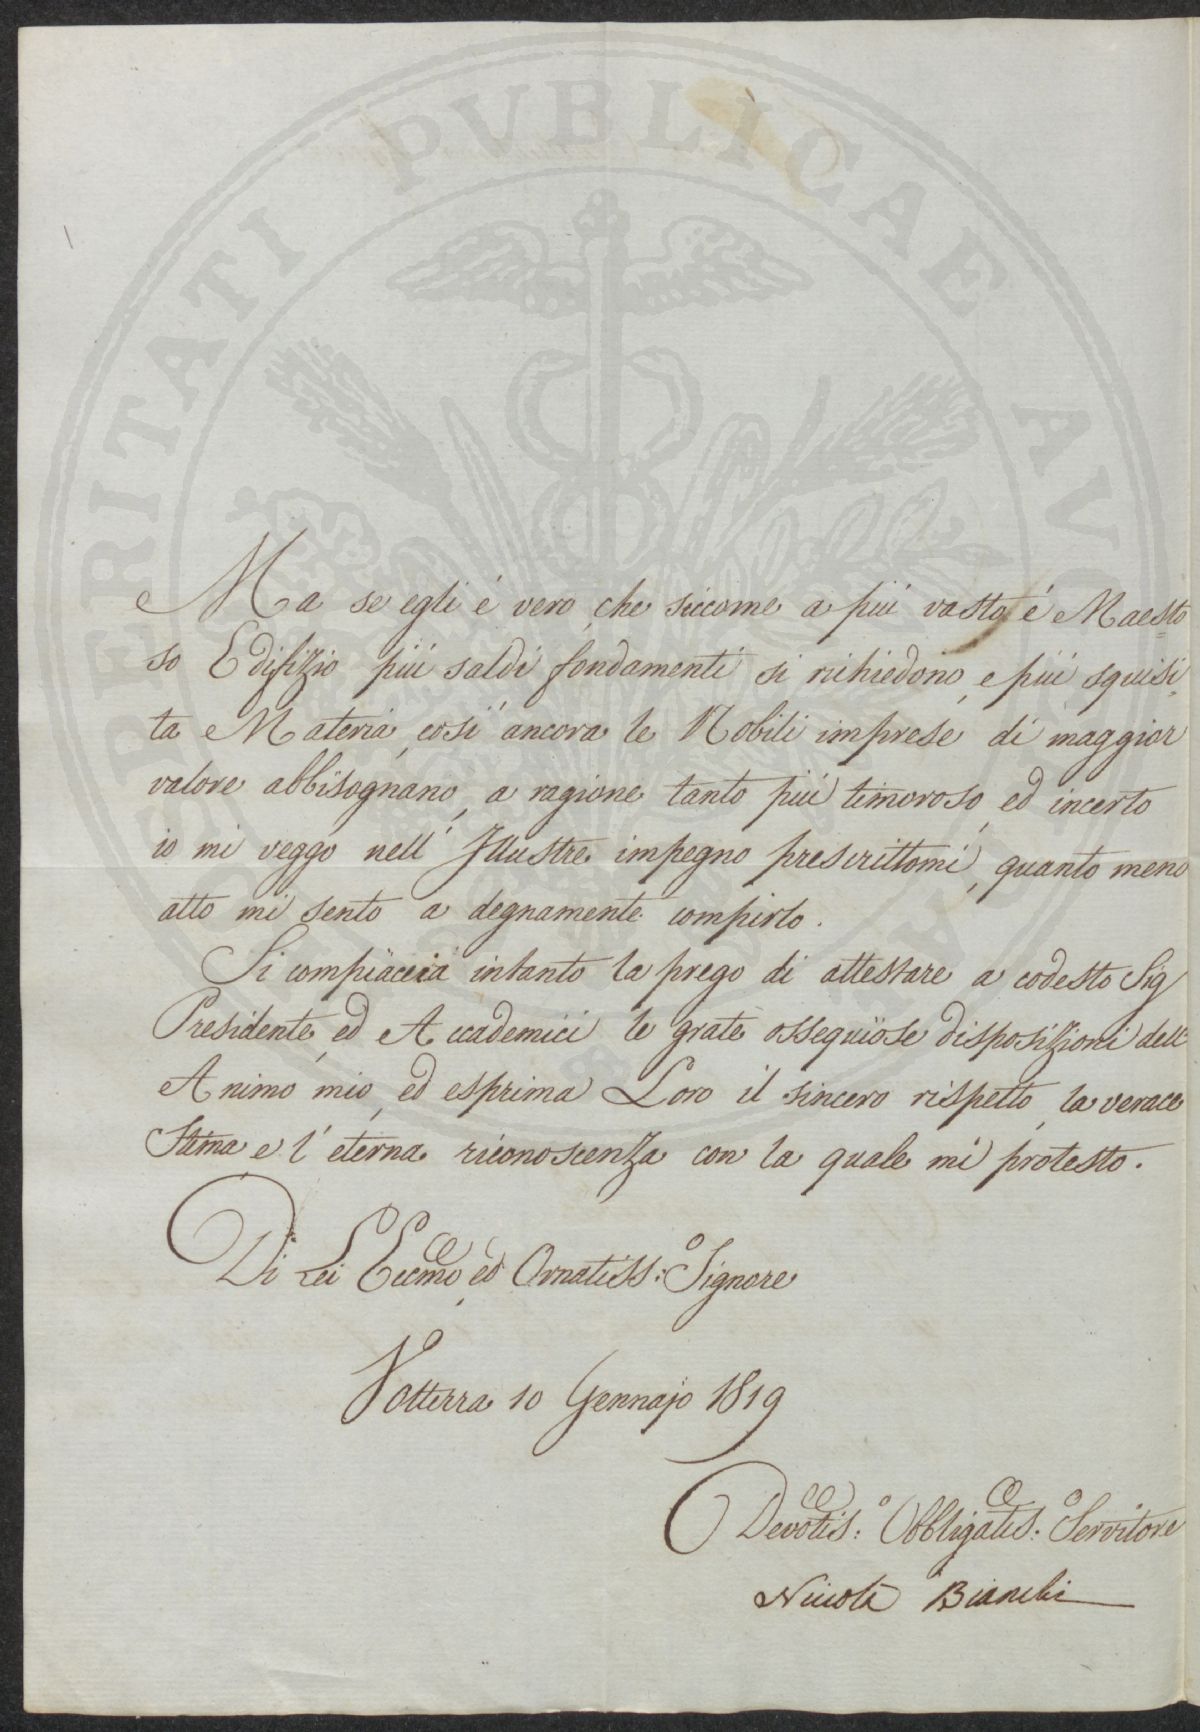 PROSPERITATI PUBLICAE AU
Ma se egli é vero, che siccome a piú vasto é Maesto=
so Edifizio piú saldi fondamenti si richiedono, e piú squisi=
ta Materia, cosí ancora le Nobili imprese di maggior
valore abbisognano, a ragione tanto piú timoroso, ed incerto
io mi veggo nell' Illustre impegno prescrittomi, quanto meno
atto mi sento a degnamente compirlo.
Si compiacerà intanto la prego di attestare a codesto Sig
Presidente, ed Accademici le grate ossequiose disposizioni dell'
Animo mio, ed esprima Loro il sincero rispetto, la verace
Stima e l' eterna riconoscenza con la quale mi protesto.
Di Lei Eccmo ed Ornatiss:o Signore
Volterra 10 Gennajo 1819
Devotis:o Obbligatis:o Servitore
Niccola Bianchi